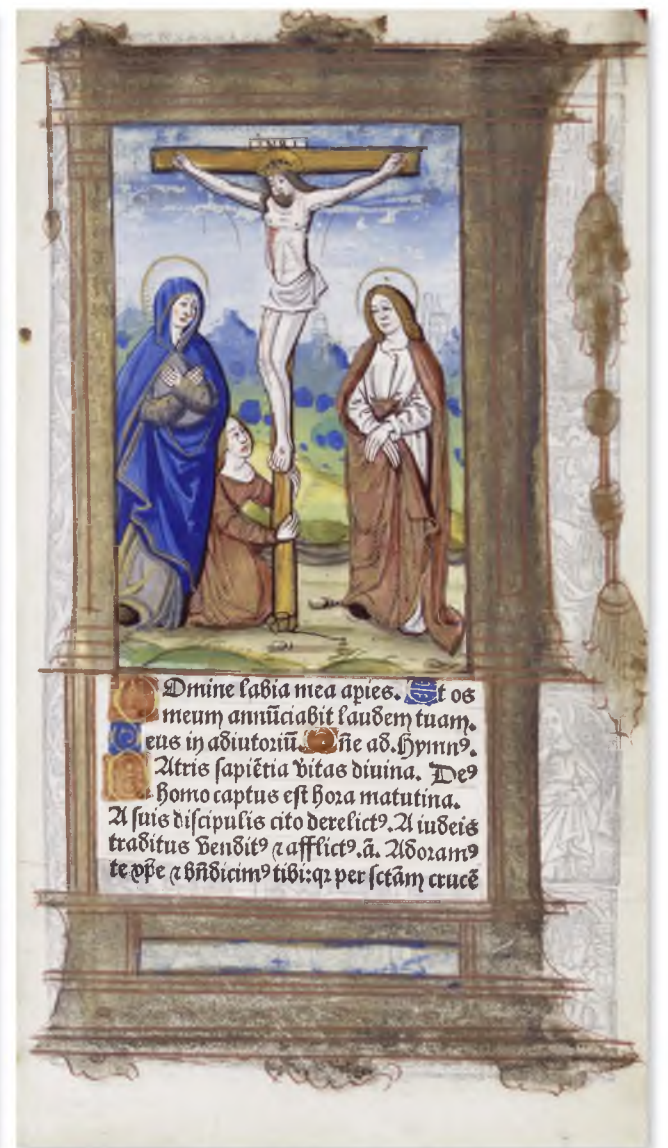 INRI
Dmine labia mea apies. Et os
meum annūciabit laudem tuam.
Deus in adiutoriū. Dñe ad. Hymnꝰ.
PAtris sapiētia vitas diuina. Deꝰ
homo captus est hora matutina.
A suis discipulis cito derelictꝰ. A iudeis
traditus venditꝰ ⁊ afflictꝰ. ā. Adoramꝰ
te xp̄e ⁊ bn̄dicimꝰ tibi: qꝛ per sctām crucē